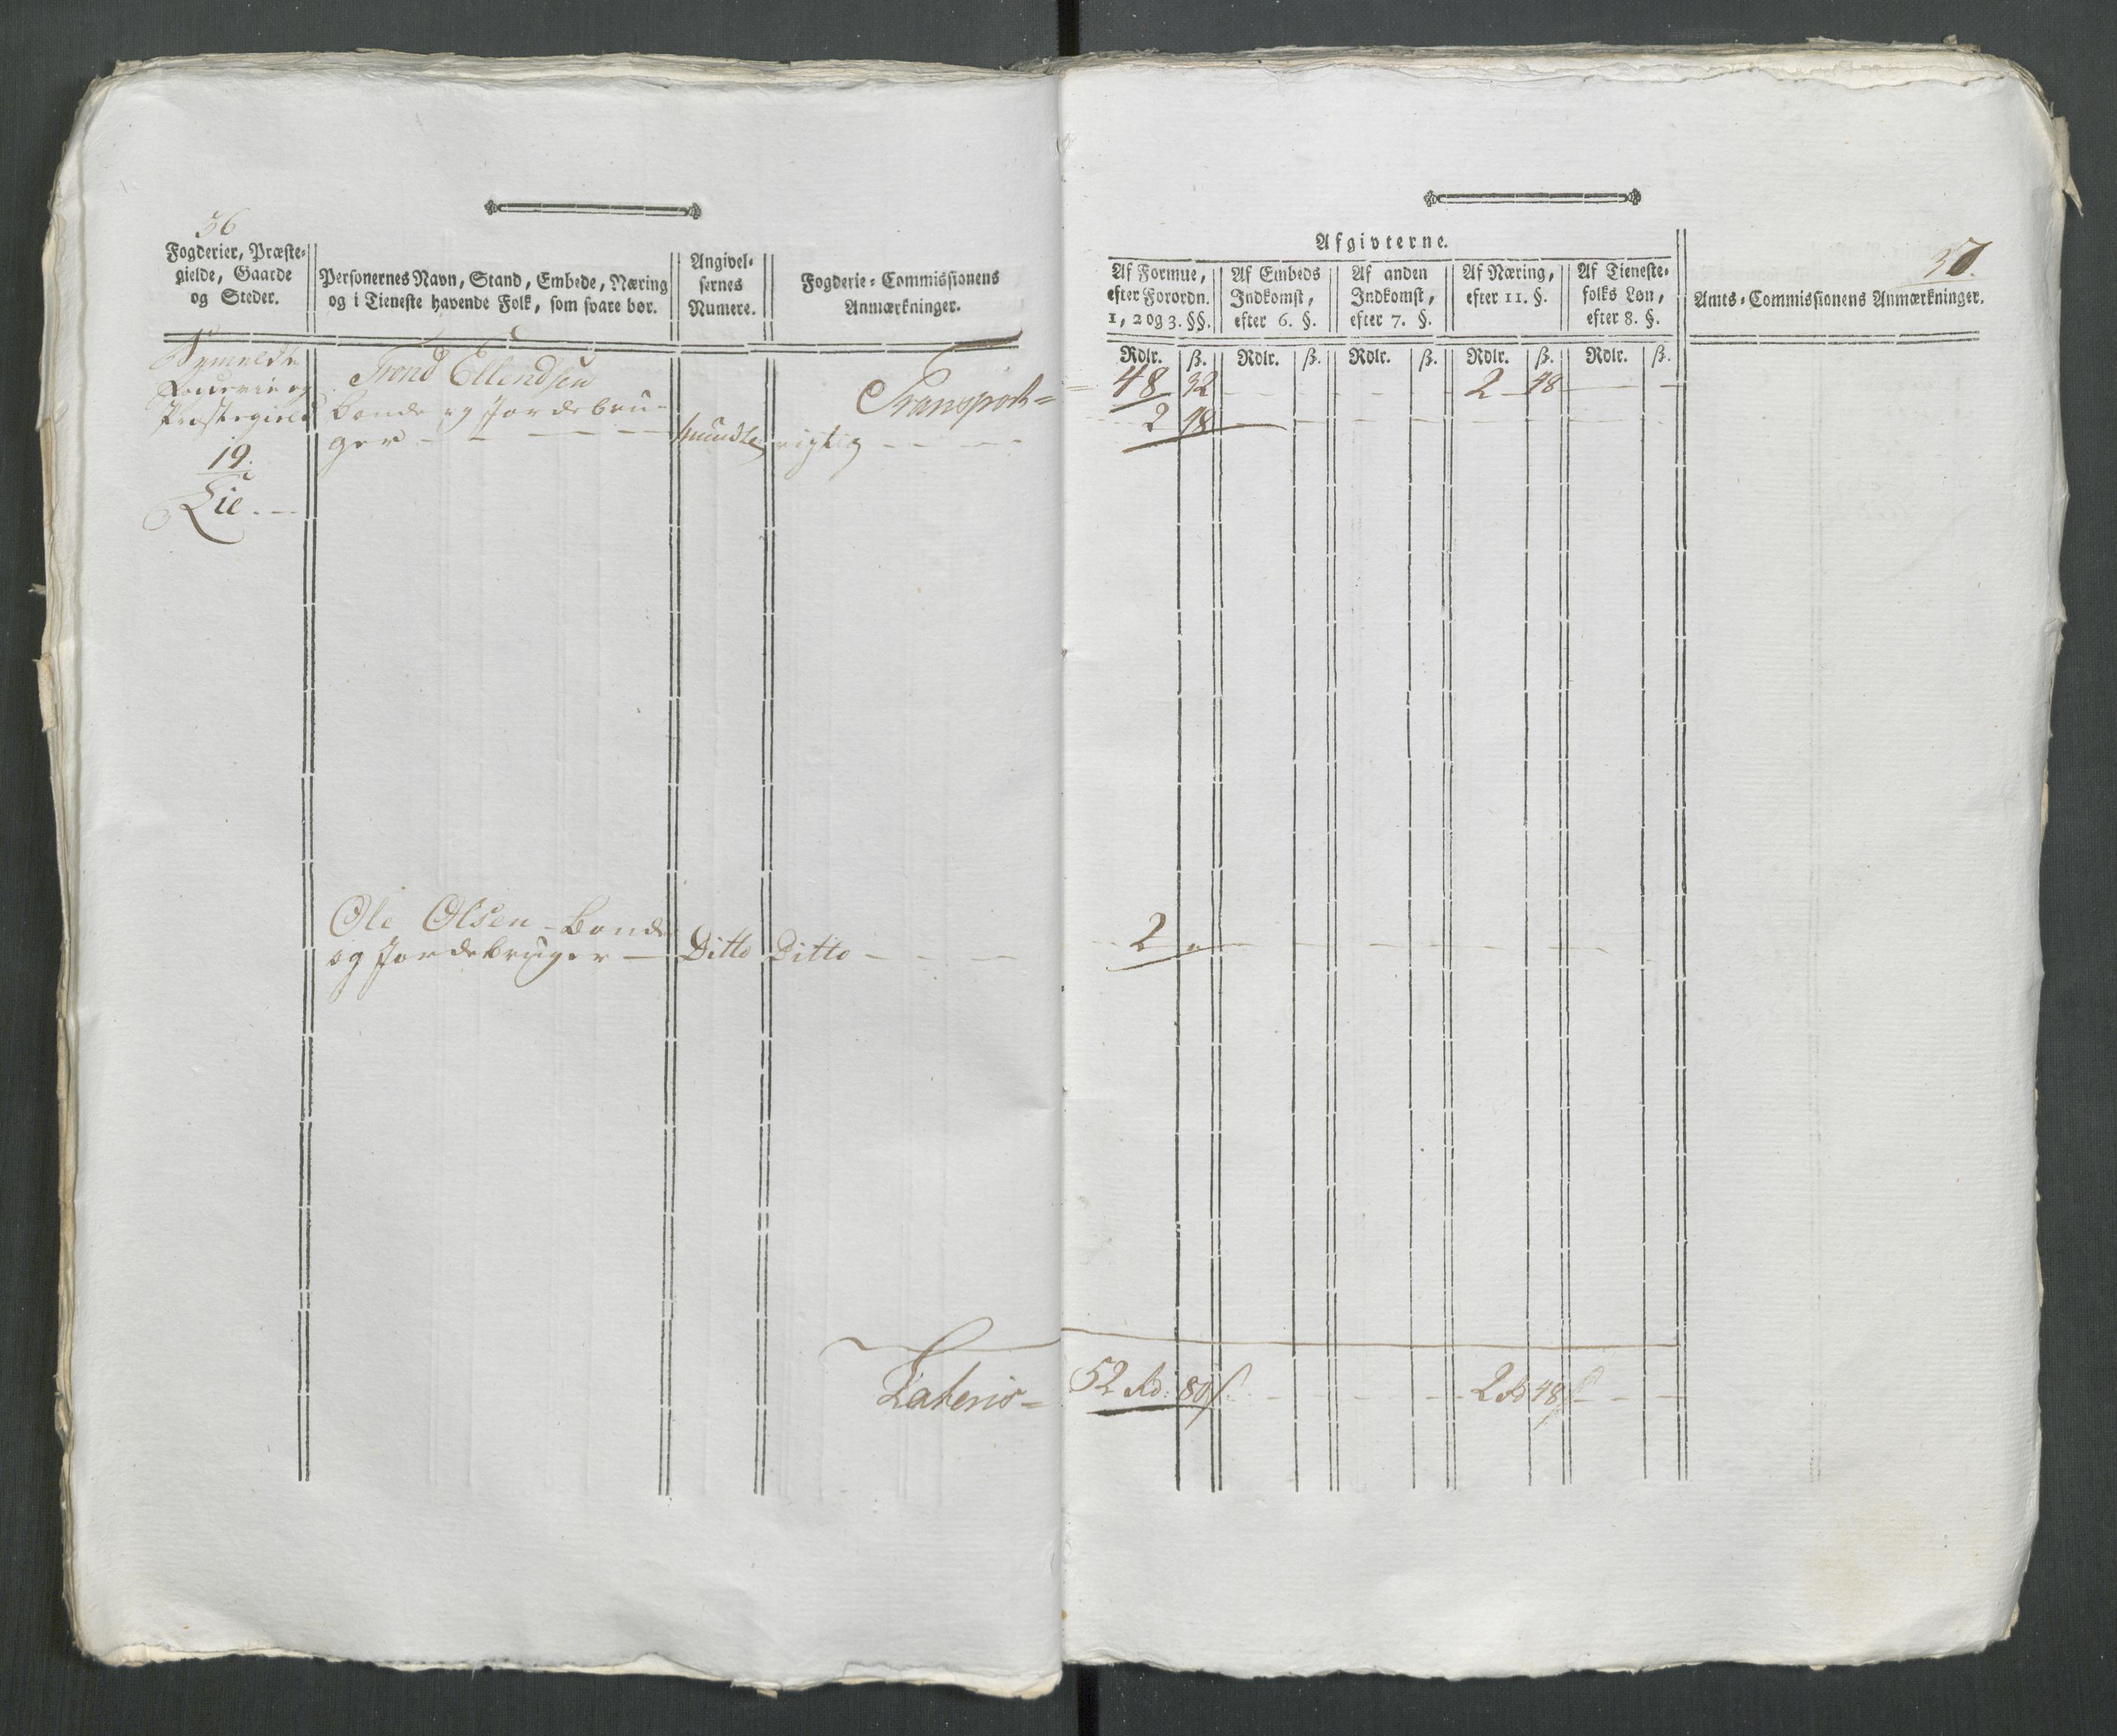 36
Fogderier, Præste-
gielde, Gaarde
og Steder.
Personernes Navn, Stand, Embede, Næring
og i Tieneste havende Folk, som svare bør.
Angivel-
sernes
Numere.
Fogderie-Commissionens
Anmærkninger.
og
Præstegield
19.
Lie.
Trond Ellendsen
Bonde og Jordebru-
ger
mundtlig
rigtig
Transport
Ole Olsen Bonde
og Jordebruger
Ditto
Ditto
Lateris
37.
Afgivterne.
Af Formue,
efter Forordn.
1, 2 og 3. §§.
Af Embeds
Indkomst,
efter 6. §.
Af anden
Indkomst,
efter 7. §.
Af Næring,
efter 11. §.
Af Tieneste-
folks Løn,
efter 8. §.
Amts-Commissionens Anmærkninger.
Rdlr. ß. Rdlr. ß. Rdlr. ß. Rdlr. ß. Rdlr. ß.
48 32 2 48
2 48
2 "
52 Rd: 80 ß 2 Rd 48 ß